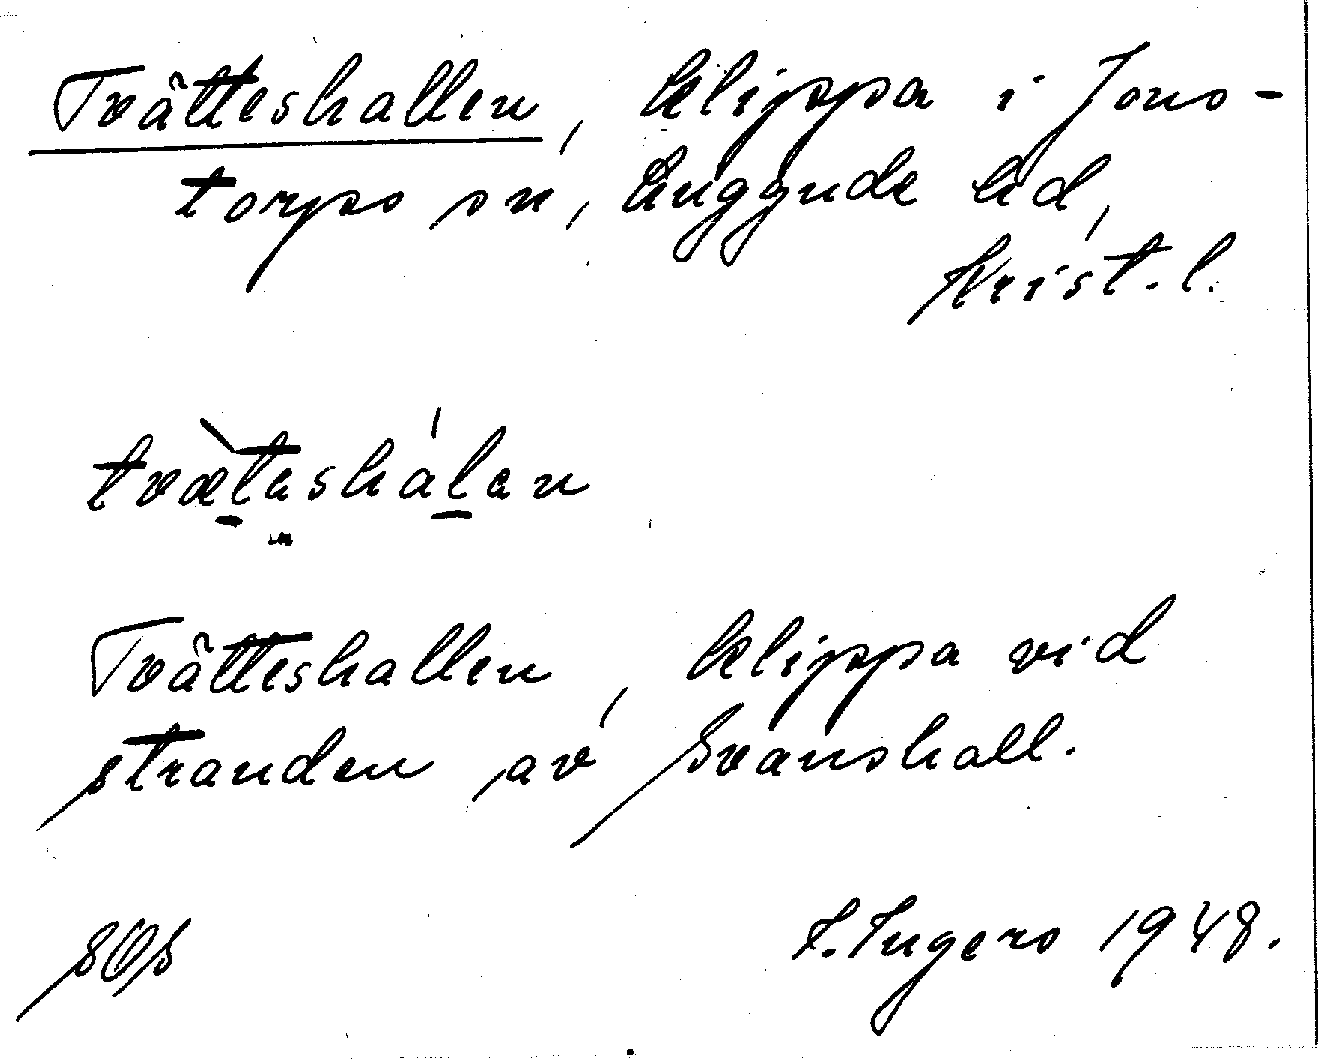 Tvätteshallen, klippa i Jons-
torps sn, Luggude hd,
Krist. l.
tvæ̀teshálen
Tvätteshallen, klippa vid
stranden av Svanshall.
SOS
I. Ingers 1948.